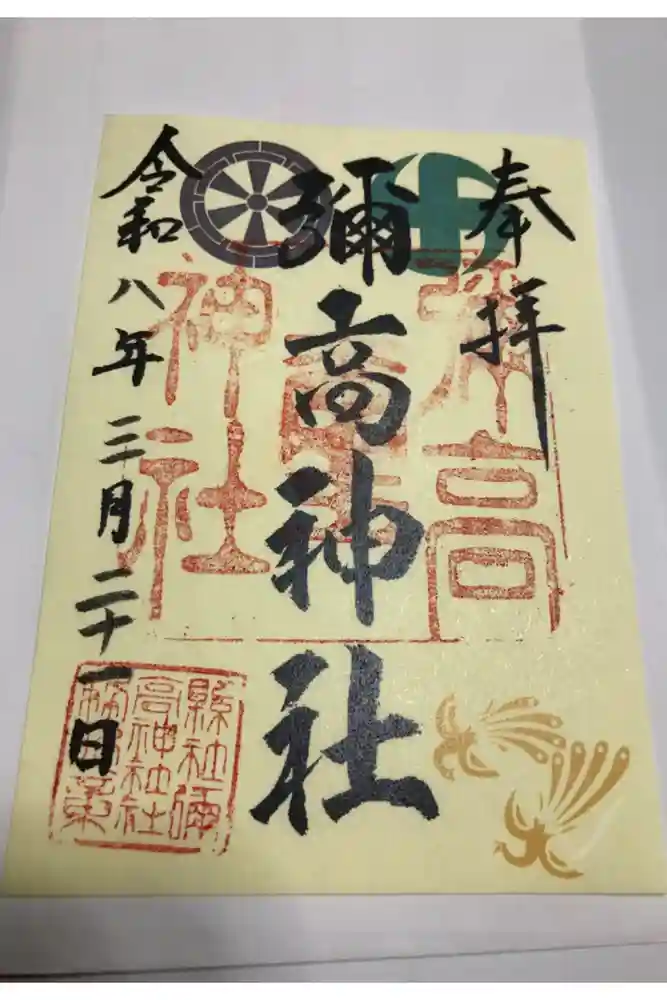 奉拝
彌高神社
令和八年三月二十一日
彌高
神社
縣社彌
高神社社